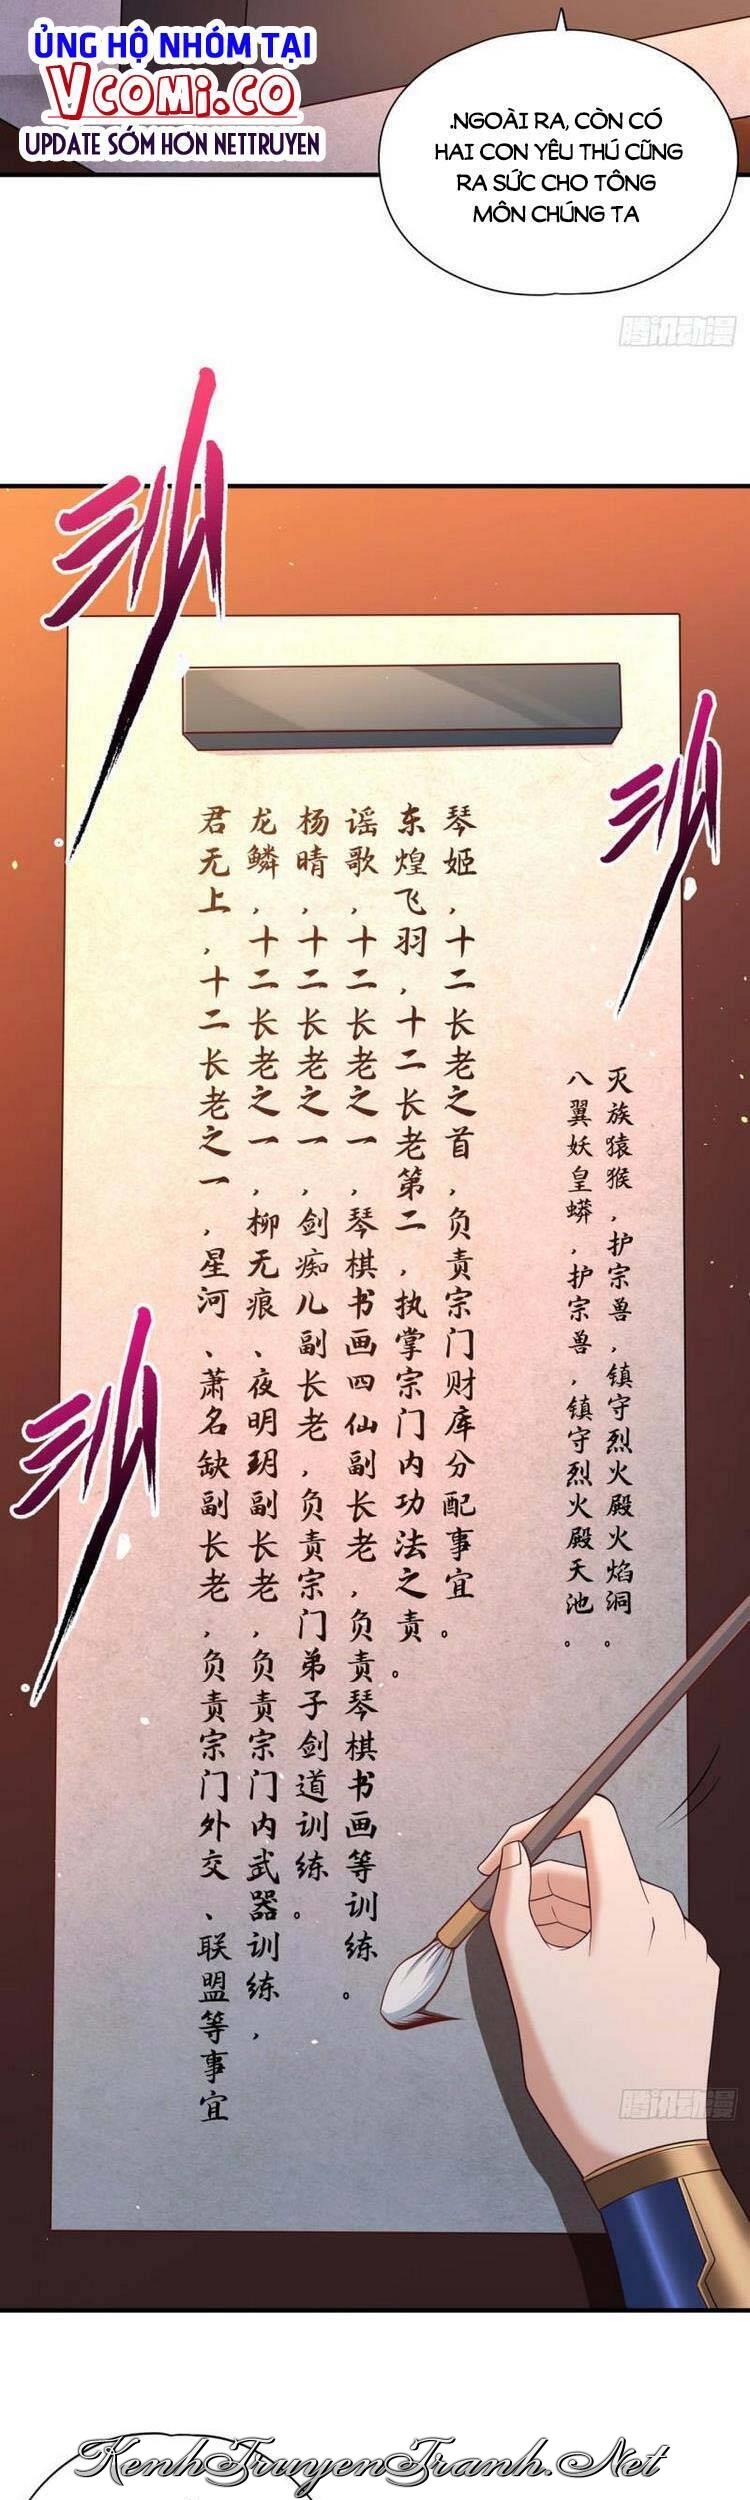 ỦNG HỘ NHÓM TẠI
VCOMI.CO
UPDATE SỚM HƠN NETTRUYEN
.NGOÀI RA, CÒN CÓ
HAI CON YÊU THÚ CŨNG
RA SỨC CHO TÔNG
MÔN CHÚNG TA
腾讯动漫
灭族猿猴，护宗兽，镇守烈火殿火焰洞。
八翼妖皇蟒，护宗兽，镇守烈火殿天池。
琴姬，十二长老之首，负责宗门财库分配事宜。
东煌飞羽，十二长老第二，执掌宗门内功法之责。
谣歌，十二长老之一，琴棋书画四仙副长老，负责琴棋书画等训练。
杨晴，十二长老之一，剑痴儿副长老，负责宗门弟子剑道训练。
龙鳞，十二长老之一，柳无痕、夜明玥副长老，负责宗门内武器训练，
君无上，十二长老之一，星河、萧名缺副长老，负责宗门外交、联盟等事宜
腾讯动漫
KenhTruyenTranh.Net